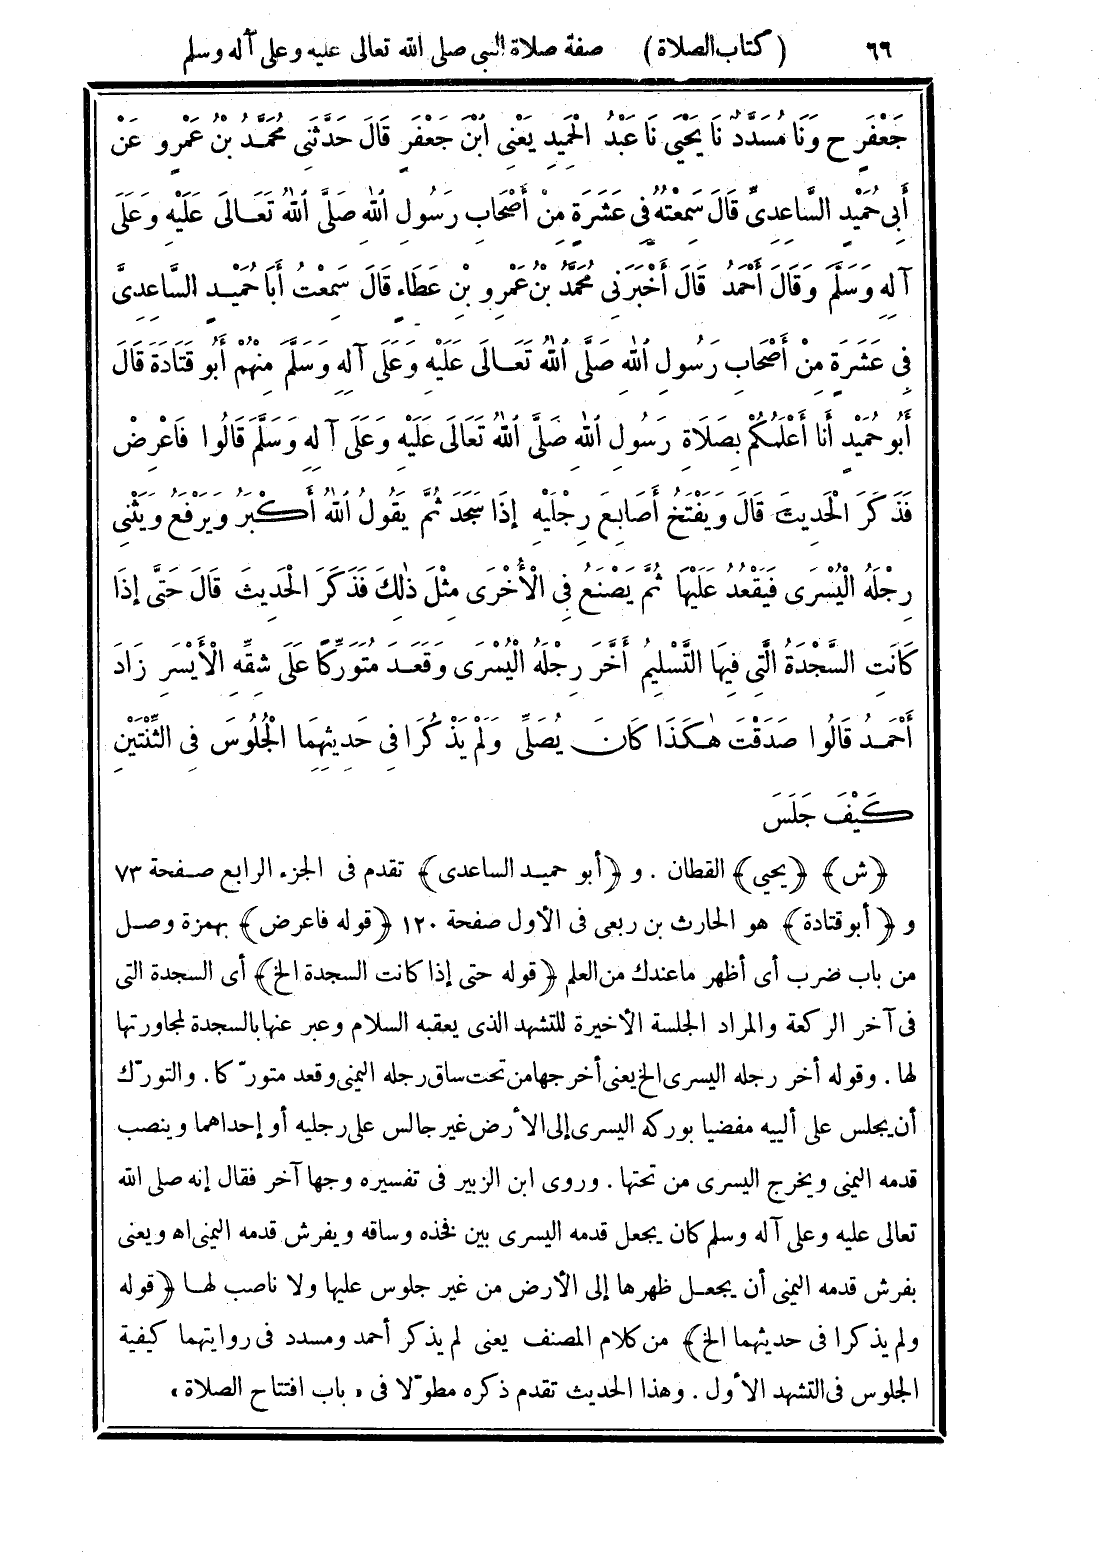 ٦٦ (كتاب الصلاة) صفة صلاة النبي صلى الله تعالى عليه وعلى آله وسلم
جَعْفَرٍ ح وَنَا مُسَدَّدٌ نَا يَحْيَى نَا عَبْدُ الْحَمِيدِ يَعْنِى ابْنَ جَعْفَرٍ قَالَ حَدَّثَنِى مُحَمَّدُ بْنُ عَمْرٍو عَنْ
أَبِى حُمَيْدٍ السَّاعِدِىِّ قَالَ سَمِعْتُهُ فِى عَشَرَةٍ مِنْ أَصْحَابِ رَسُولِ اللهِ صَلَّى اللهُ تَعَالَى عَلَيْهِ وَعَلَى
آلِهِ وَسَلَّمَ وَقَالَ أَحْمَدُ قَالَ أَخْبَرَنِى مُحَمَّدُ بْنُ عَمْرِو بْنِ عَطَاءٍ قَالَ سَمِعْتُ أَبَا حُمَيْدٍ السَّاعِدِىَّ
فِى عَشَرَةٍ مِنْ أَصْحَابِ رَسُولِ اللهِ صَلَّى اللهُ تَعَالَى عَلَيْهِ وَعَلَى آلِهِ وَسَلَّمَ مِنْهُمْ أَبُو قَتَادَةَ قَالَ
أَبُو حُمَيْدٍ أَنَا أَعْلَمُكُمْ بِصَلَاةِ رَسُولِ اللهِ صَلَّى اللهُ تَعَالَى عَلَيْهِ وَعَلَى آلِهِ وَسَلَّمَ قَالُوا فَاعْرِضْ
فَذَكَرَ الْحَدِيثَ قَالَ وَيَفْتَخُ أَصَابِعَ رِجْلَيْهِ إِذَا سَجَدَ ثُمَّ يَقُولُ اللهُ أَكْبَرُ وَيَرْفَعُ وَيَثْنِى
رِجْلَهُ الْيُسْرَى فَيَقْعُدُ عَلَيْهَا ثُمَّ يَصْنَعُ فِى الْأُخْرَى مِثْلَ ذٰلِكَ فَذَكَرَ الْحَدِيثَ قَالَ حَتَّى إِذَا
كَانَتِ السَّجْدَةُ الَّتِى فِيهَا التَّسْلِيمُ أَخَّرَ رِجْلَهُ الْيُسْرَى وَقَعَدَ مُتَوَرِّكًا عَلَى شِقِّهِ الْأَيْسَرِ زَادَ
أَحْمَدُ قَالُوا صَدَقْتَ هٰكَذَا كَانَ يُصَلِّى وَلَمْ يَذْكُرَا فِى حَدِيثِهِمَا الْجُلُوسَ فِى الثِّنْتَيْنِ
كَيْفَ جَلَسَ
﴿ش﴾ ﴿يحيى﴾ القطان . و ﴿أبو حميد الساعدى﴾ تقدم فى الجزء الرابع صفحة ٧٣
و ﴿أبو قتادة﴾ هو الحارث بن ربعى فى الأول صفحة ١٢٠ ﴿قوله فاعرض﴾ بهمزة وصل
من باب ضرب أى أظهر ماعندك من العلم ﴿قوله حتى إذا كانت السجدة الخ﴾ أى السجدة التى
فى آخر الركعة والمراد الجلسة الأخيرة للتشهد الذى يعقبه السلام وعبر عنها بالسجدة لمجاورتها
لها . وقوله أخر رجله اليسرى الخ يعنى أخرجها من تحت ساق رجله اليمنى وقعد متورّكا . والتورّك
أن يجلس على ألييه مفضيا بوركه اليسرى إلى الأرض غير جالس على رجليه أو إحداهما وينصب
قدمه اليمنى ويخرج اليسرى من تحتها . وروى ابن الزبير فى تفسيره وجها آخر فقال إنه صلى الله
تعالى عليه وعلى آله وسلم كان يجعل قدمه اليسرى بين فخذه وساقه ويفرش قدمه اليمنى اه ويعنى
بفرش قدمه اليمنى أن يجعل ظهرها إلى الأرض من غير جلوس عليها ولا ناصب لها ﴿قوله
ولم يذكرا فى حديثهما الخ﴾ من كلام المصنف يعنى لم يذكر أحمد ومسدد فى روايتهما كيفية
الجلوس فى التشهد الأول . وهذا الحديث تقدم ذكره مطوّلا فى «باب افتتاح الصلاة»